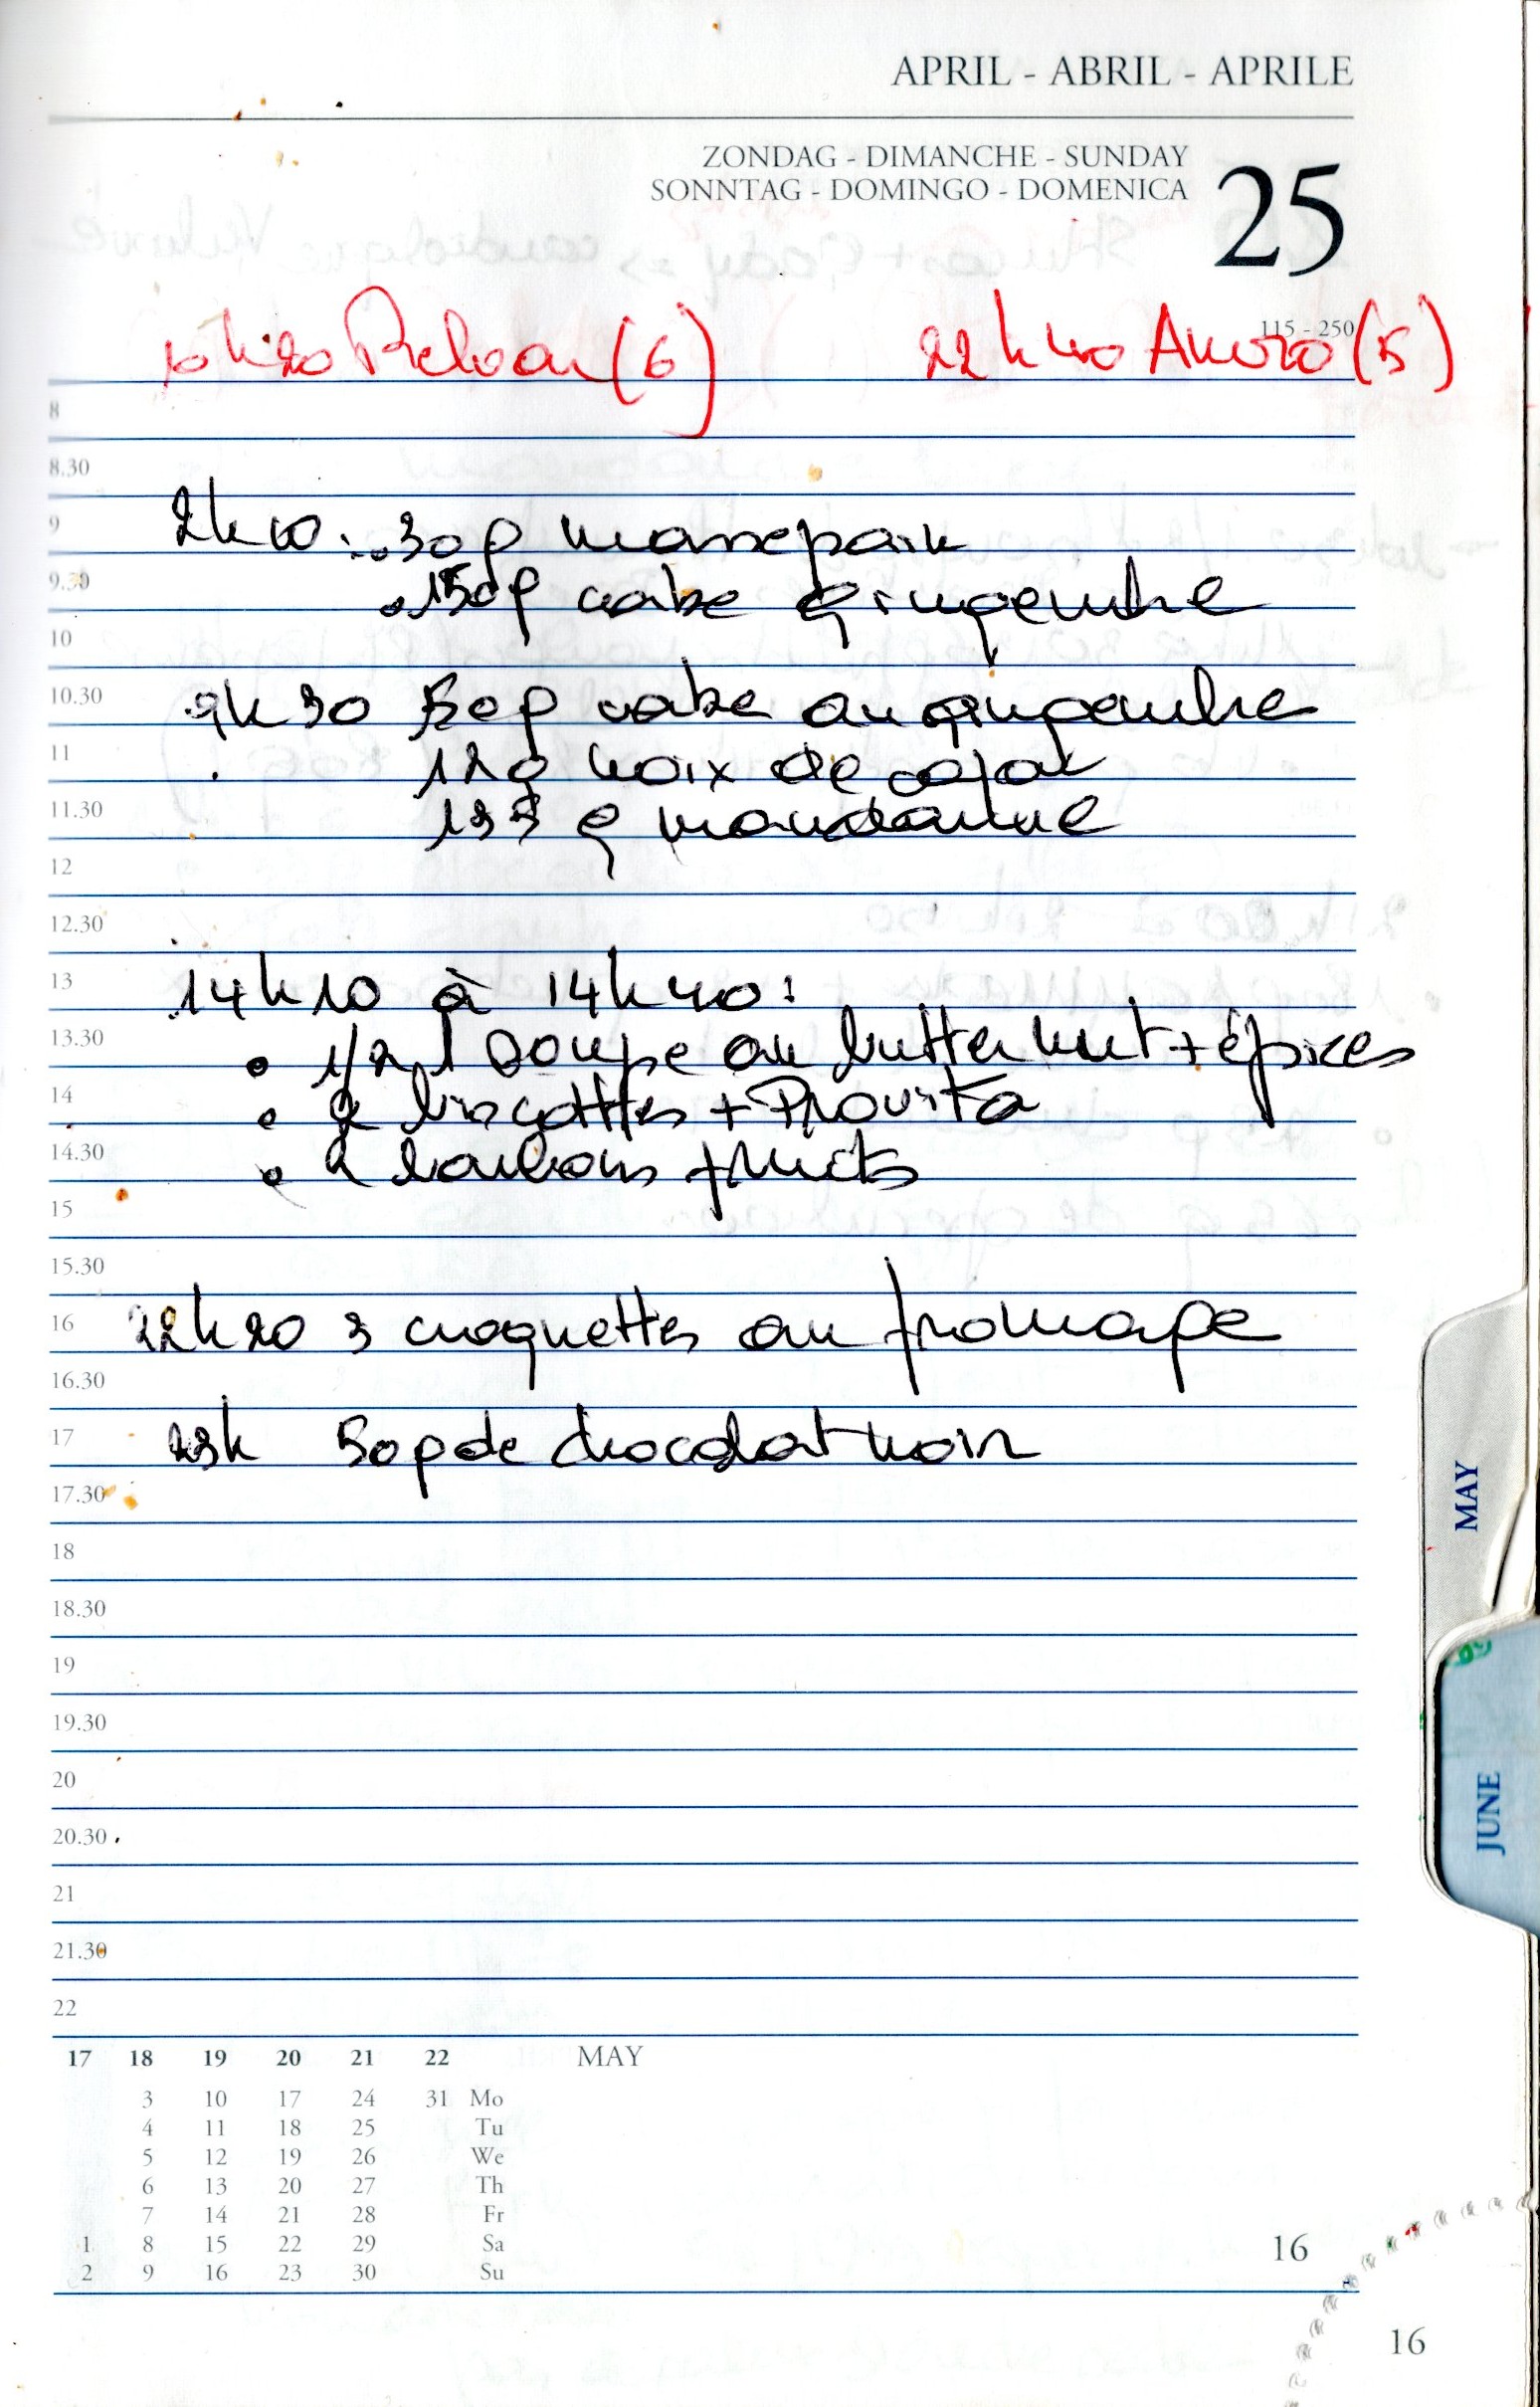 APRIL - ABRIL - APRILE
ZONDAG - DIMANCHE - SUNDAY
SONNTAG - DOMINGO - DOMENICA
25
115 - 250
10h20 (6) 22h40 (5)
8
8.30
9 2h10 : 30g massepain
9.30 150g cake gingembre
10
10.30 9h30 50g cake au gingembre
11 12g noix de cajou
11.30 133 g mandarine
12
12.30
13 14h10 à 14h40 :
13.30 • 1/2 l soupe au butternut + épices
14 • 2 biscottes + Provita
14.30 • 2 bonbons fruits
15
15.30
16 22h20 3 croquettes au fromage
16.30
17 23h 50g de chocolat noir
17.30
18
18.30
19
19.30
20
20.30
21
21.30
22
17 18 19 20 21 22 MAY
3 10 17 24 31 Mo
4 11 18 25 Tu
5 12 19 26 We
6 13 20 27 Th
7 14 21 28 Fr
1 8 15 22 29 Sa
2 9 16 23 30 Su
16
16
MAY
JUNE